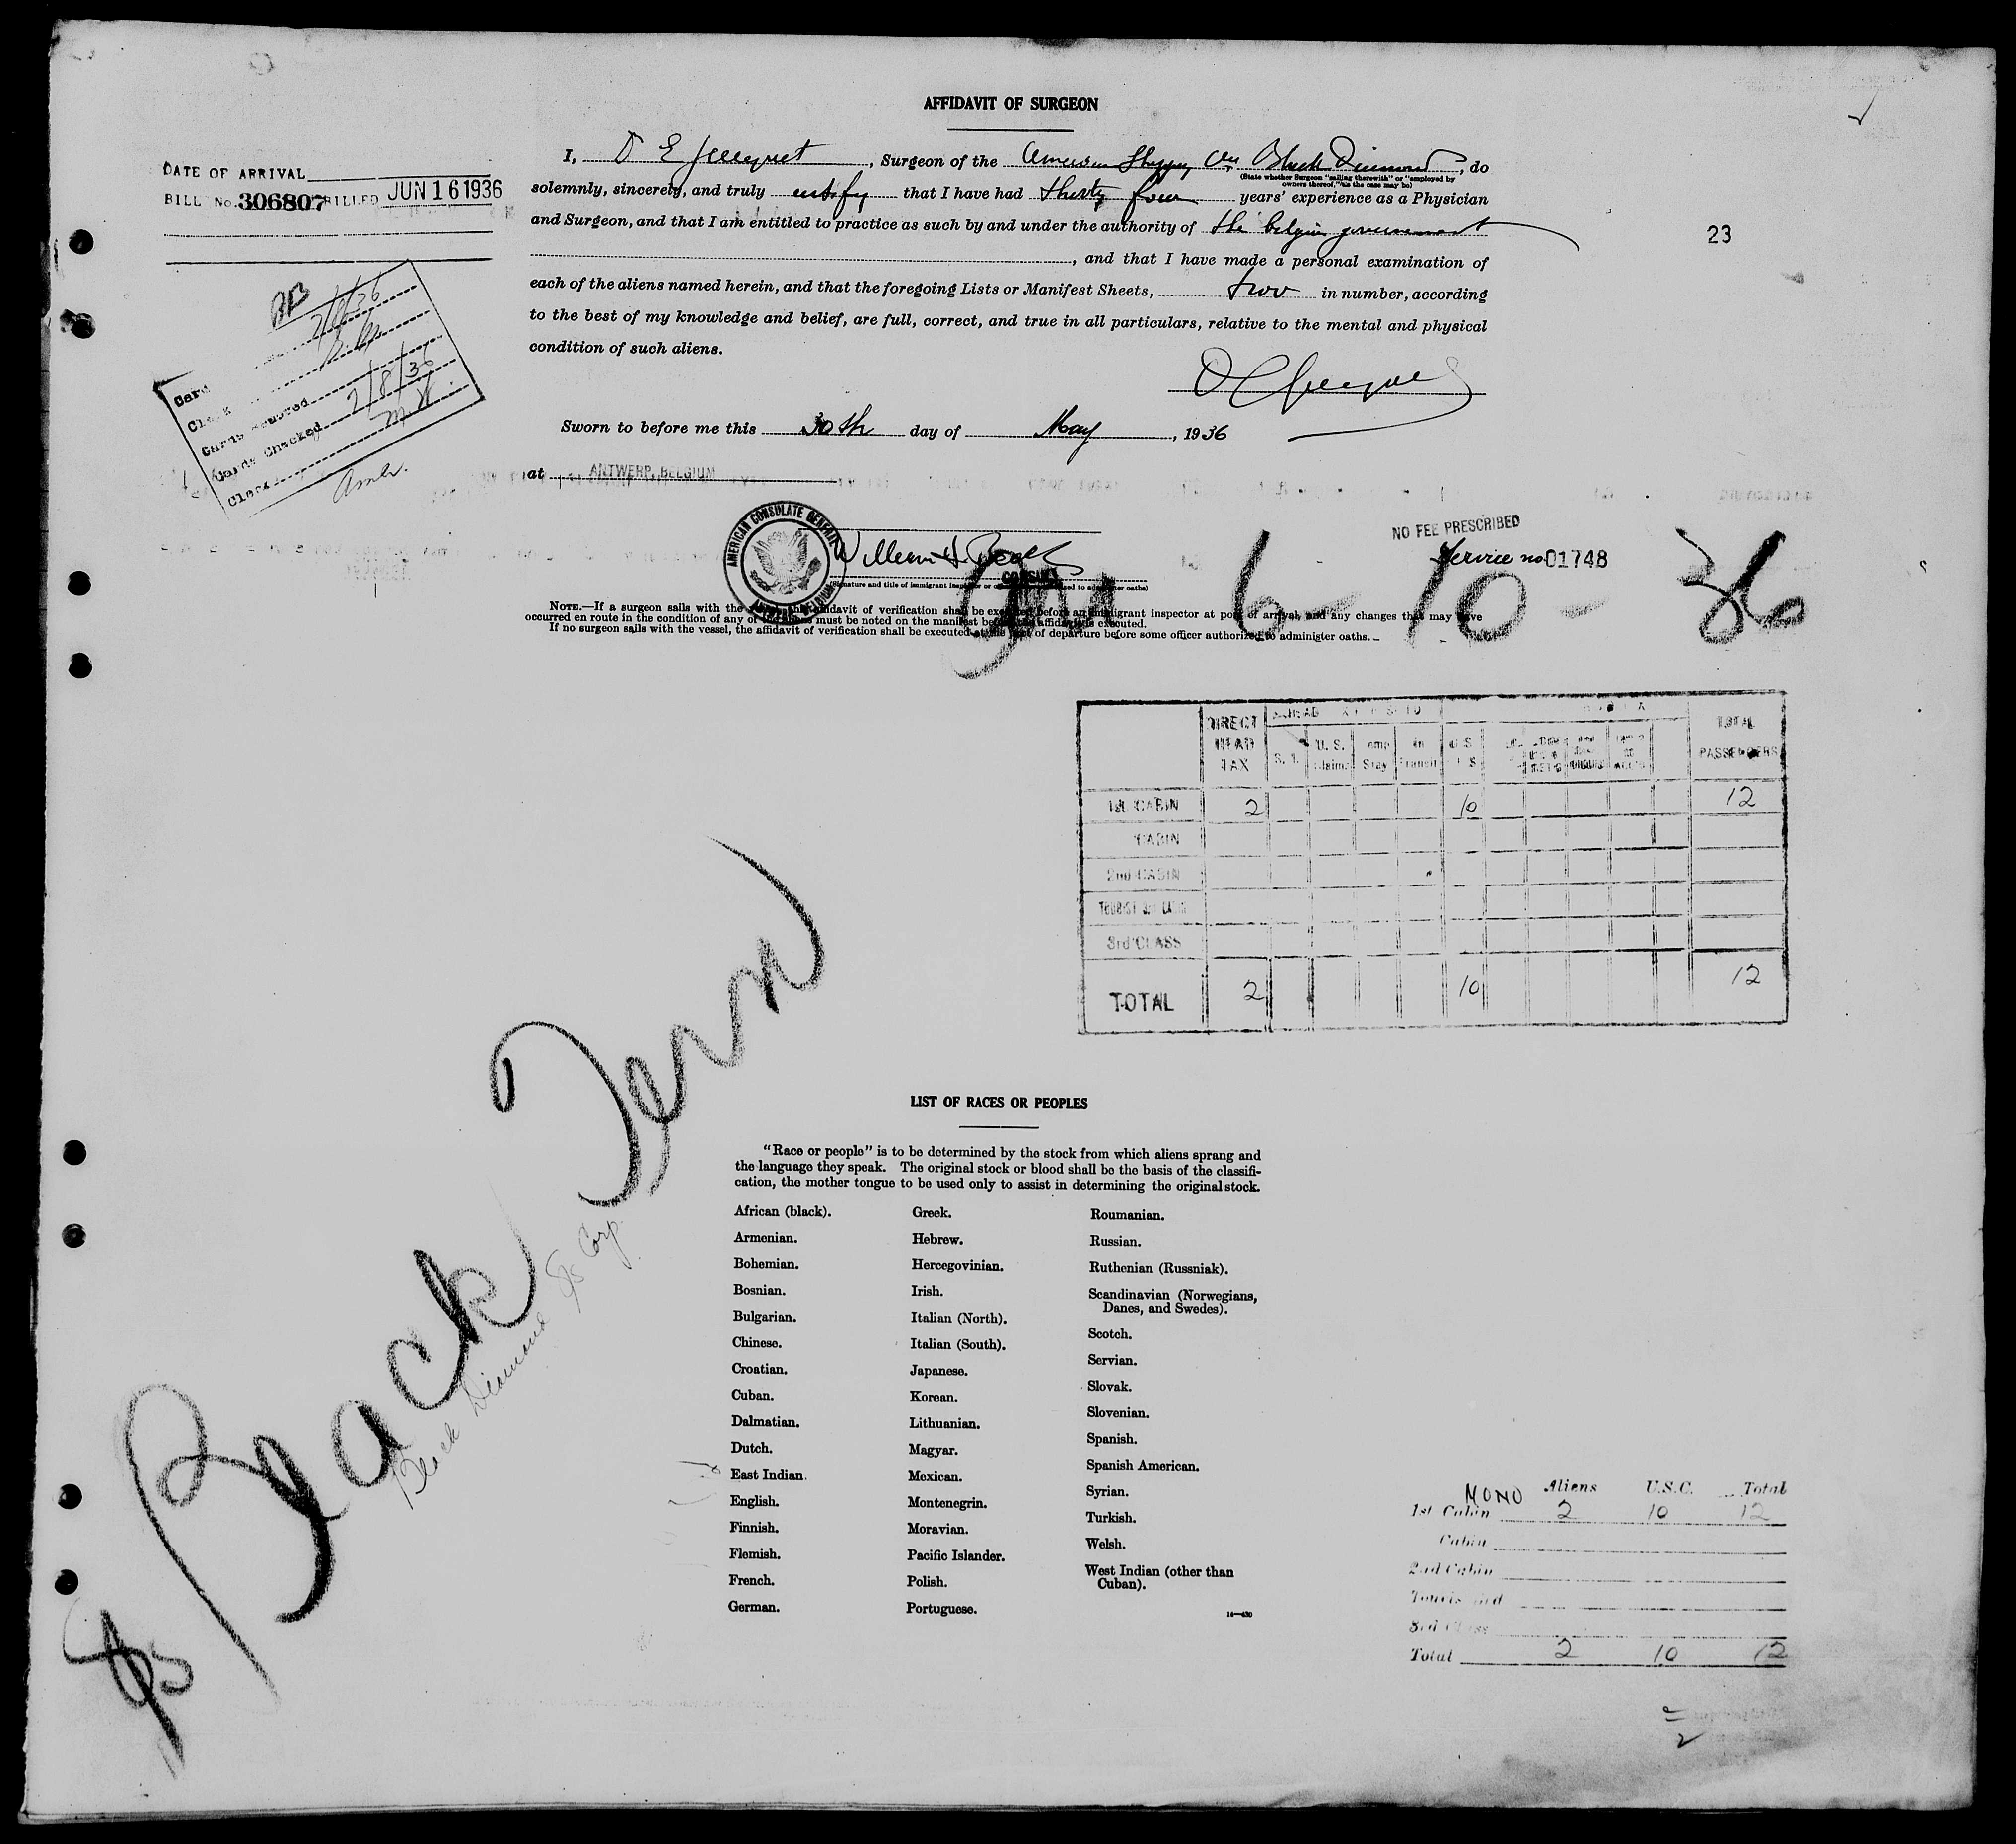 AFFIDAVIT OF SURGEON
DATE OF ARRIVAL
BILL No. 306807 BILLED JUN 16 1936
I, D E , Surgeon of the American Black Diamond, do
(State whether Surgeon "sailing therewith" or "employed by
owners thereof," as the case may be)
solemnly, sincerely, and truly certify that I have had thirty four years' experience as a Physician
and Surgeon, and that I am entitled to practice as such by and under the authority of the belgian government
, and that I have made a personal examination of
each of the aliens named herein, and that the foregoing Lists or Manifest Sheets, two in number, according
to the best of my knowledge and belief, are full, correct, and true in all particulars, relative to the mental and physical
condition of such aliens.
23
Card
Cards Checked 2/8/36
Clerk
Sworn to before me this 30th day of May, 1936
at ANTWERP, BELGIUM
AMERICAN CONSULATE GENERAL
William H.
CONSUL
NO FEE PRESCRIBED
Service no. 01748
6-10-36
NOTE.—If a surgeon sails with the affidavit of verification shall be before an immigrant inspector at port of arrival, and any changes that may have
occurred en route in the condition of any of the aliens must be noted on the manifest before the affidavit is executed.
If no surgeon sails with the vessel, the affidavit of verification shall be executed at the port of departure before some officer authorized to administer oaths.
DIRECT HEAD TAX
S. I.
U. S. Claims
Temp Stay
In Transit
U S
TOTAL PASSENGERS
1st CABIN 2 10 12
CABIN
2nd CABIN
TOURIST 3rd CABIN
3rd CLASS
TOTAL 2 10 12
S/S Black Tern
Black Diamond S/S Corp.
LIST OF RACES OR PEOPLES
"Race or people" is to be determined by the stock from which aliens sprang and
the language they speak. The original stock or blood shall be the basis of the classifi-
cation, the mother tongue to be used only to assist in determining the original stock.
African (black).
Armenian.
Bohemian.
Bosnian.
Bulgarian.
Chinese.
Croatian.
Cuban.
Dalmatian.
Dutch.
East Indian.
English.
Finnish.
Flemish.
French.
German.
Greek.
Hebrew.
Hercegovinian.
Irish.
Italian (North).
Italian (South).
Japanese.
Korean.
Lithuanian.
Magyar.
Mexican.
Montenegrin.
Moravian.
Pacific Islander.
Polish.
Portuguese.
Roumanian.
Russian.
Ruthenian (Russniak).
Scandinavian (Norwegians,
Danes, and Swedes).
Scotch.
Servian.
Slovak.
Slovenian.
Spanish.
Spanish American.
Syrian.
Turkish.
Welsh.
West Indian (other than
Cuban).
MONO Aliens U.S.C. Total
1st Cabin 2 10 12
Cabin
2nd Cabin
3rd Class
Total 2 10 12